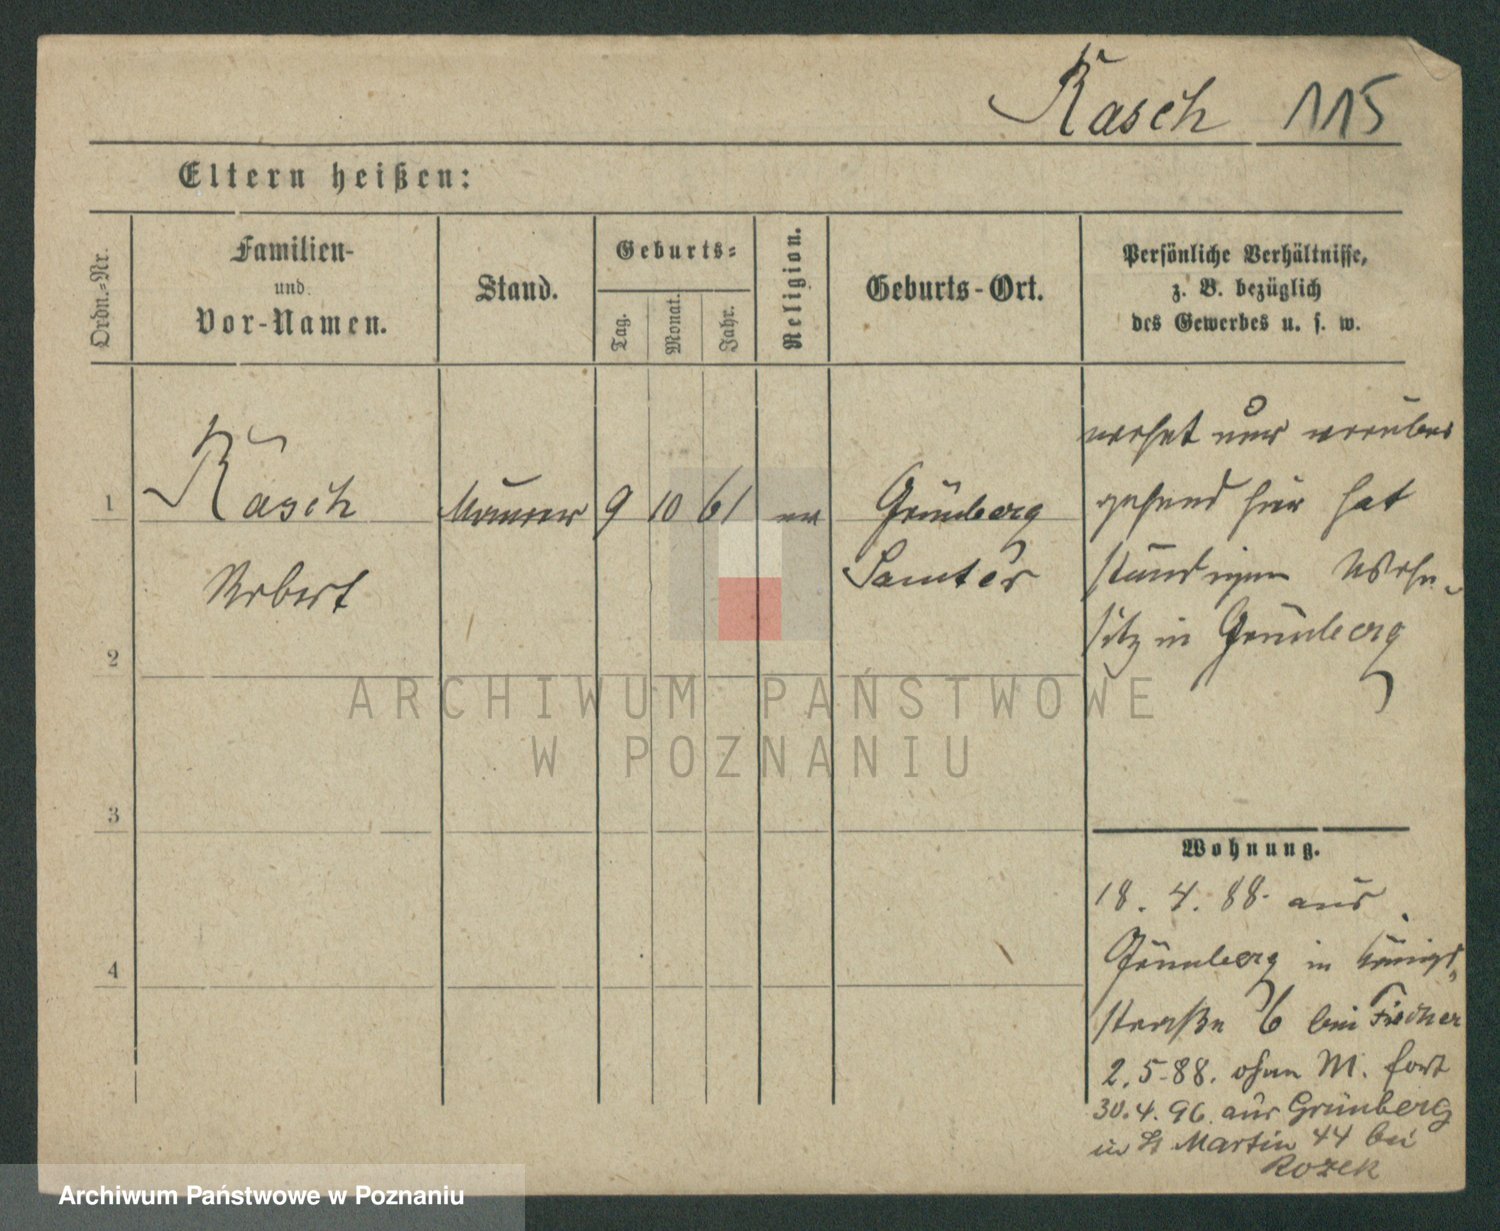 Rasch 115
Eltern heißen:
Ordn.-Nr.
Familien-
und
Vor-Namen.
Stand.
Geburts-
Tag.
Monat.
Jahr.
Religion.
Geburts-Ort.
Persönliche Verhältnisse,
z. B. bezüglich
des Gewerbes u. s. w.
1
Rasch Maurer 9 10 61 ev Grünberg
Robert Samter
2
3
4
wohnt nur vorüber
gehend hier hat
ständigen Wohn-
sitz in Grünberg
Wohnung.
18. 4. 88. aus
Grünberg in Königs-
straße 6 bei Fischer
2. 5. 88. ohne M. fort
30. 4. 96. aus Grünberg
in St Martin 44 bei
Rozek
ARCHIWUM PAŃSTWOWE
W POZNANIU
Archiwum Państwowe w Poznaniu